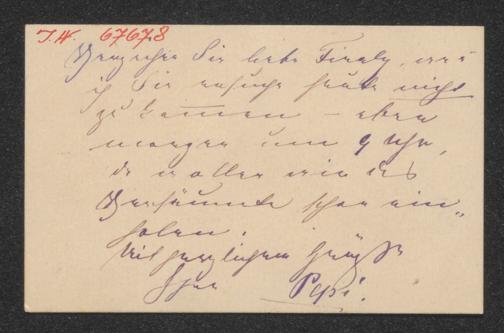 I.N. 67678
Verzeihen Sie liebe Finaly, wenn
ich Sie ersuche heute nicht
zu kommen - aber
morgen um 9 Uhr,
da wollen wir das
Versäumte schon ein-
holen.
Mit herzlichen Grüßen
Ihre Pepi.